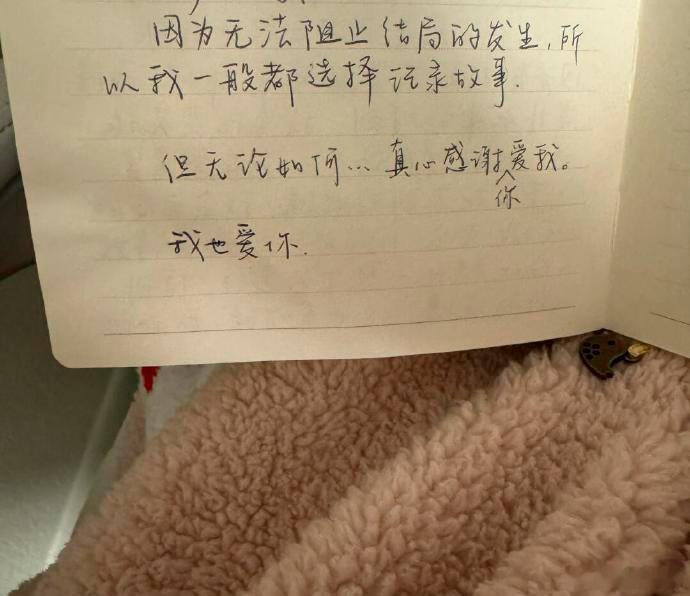 因为无法阻止结局的发生,所
以我一般都选择记录故事.
但无论如何...真心感谢你爱我。
我也爱你.